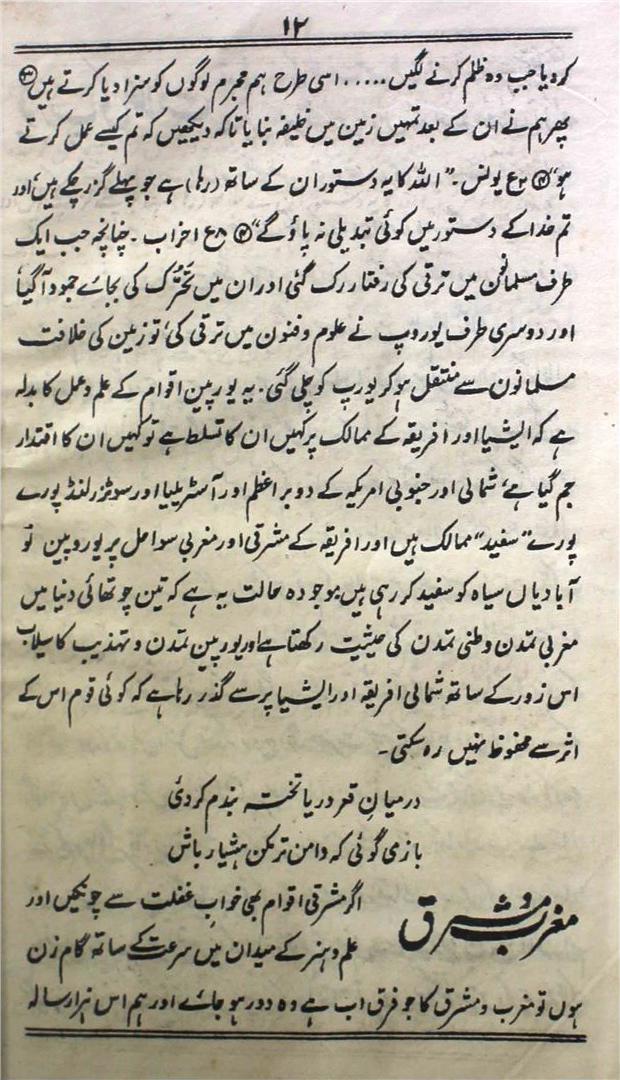 ۱۲
کر دیا جب وہ ظلم کرنے لگیں ..... اسی طرح ہم مجرم لوگوں کو سزا دیا کرتے ہیں
پھر ہم نے ان کے بعد تمہیں زمین میں خلیفہ بنایا تاکہ دیکھیں کہ تم کیسے عمل کرتے
ہو" ۲ع یونس ۔ "اللہ کا یہ دستور ان کے ساتھ (رہا) ہے جو پہلے گزر چکے ہیں، اور
تم خدا کے دستور میں کوئی تبدیلی نہ پاؤ گے" ۸ع احزاب ۔ چنانچہ جب ایک
طرف مسلمانوں میں ترقی کی رفتار رک گئی اور ان میں تحَرُّک کی بجائے جمود آگیا
اور دوسری طرف یوروپ نے علوم و فنون میں ترقی کی، تو زمین کی خلافت
مسلمانوں سے منتقل ہو کر یورپ کو چلی گئی ۔ یہ یورپین اقوام کے علم و عمل کا بدلہ
ہے کہ ایشیا اور افریقہ کے ممالک پر کہیں ان کا تسلط ہے تو کہیں ان کا اقتدار
جم گیا ہے، شمالی اور جنوبی امریکہ کے دو بر اعظم اور آسٹریلیا اور سوئٹزرلنڈ پورے
پورے "سفید" ممالک ہیں اور افریقہ کے مشرقی اور مغربی سواحل پر یوروپین نَو
آبادیاں سیاہ کو سفید کر رہی ہیں موجودہ حالت یہ ہے کہ تین چوتھائی دنیا میں
مغربی تمدن وطنی تمدن کی حیثیت رکھتا ہے اور یورپین تمدن و تہذیب کا سیلاب
اس زور کے ساتھ شمالی افریقہ اور ایشیا پر سے گذر رہا ہے کہ کوئی قوم اس کے
اثر سے محفوظ نہیں رہ سکتی ۔
درمیانِ قعر دریا تختہ بندم کردئ
بازی گوئی کہ دامن تر مکن ہشیار باش
مغرب و مشرق
اگر مشرقی اقوام بھی خوابِ غفلت سے چونکیں اور
علم و ہنر کے میدان میں سرعت کے ساتھ گام زن
ہوں تو مغرب و مشرق کا جو فرق اب ہے وہ دور ہو جائے اور ہم اس ہزار سالہ